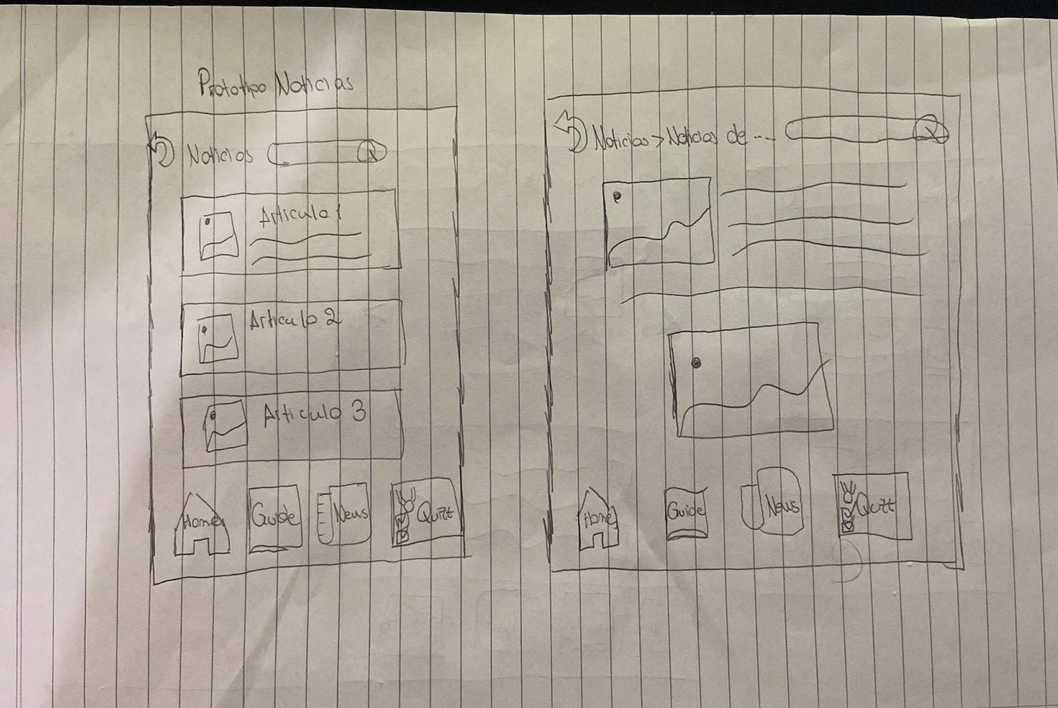 Prototipo Noticias
Noticias
Articulo 1
Articulo 2
Articulo 3
Home Guide News Quizz
Noticias > Noticias de ---
Home Guide News Quizz